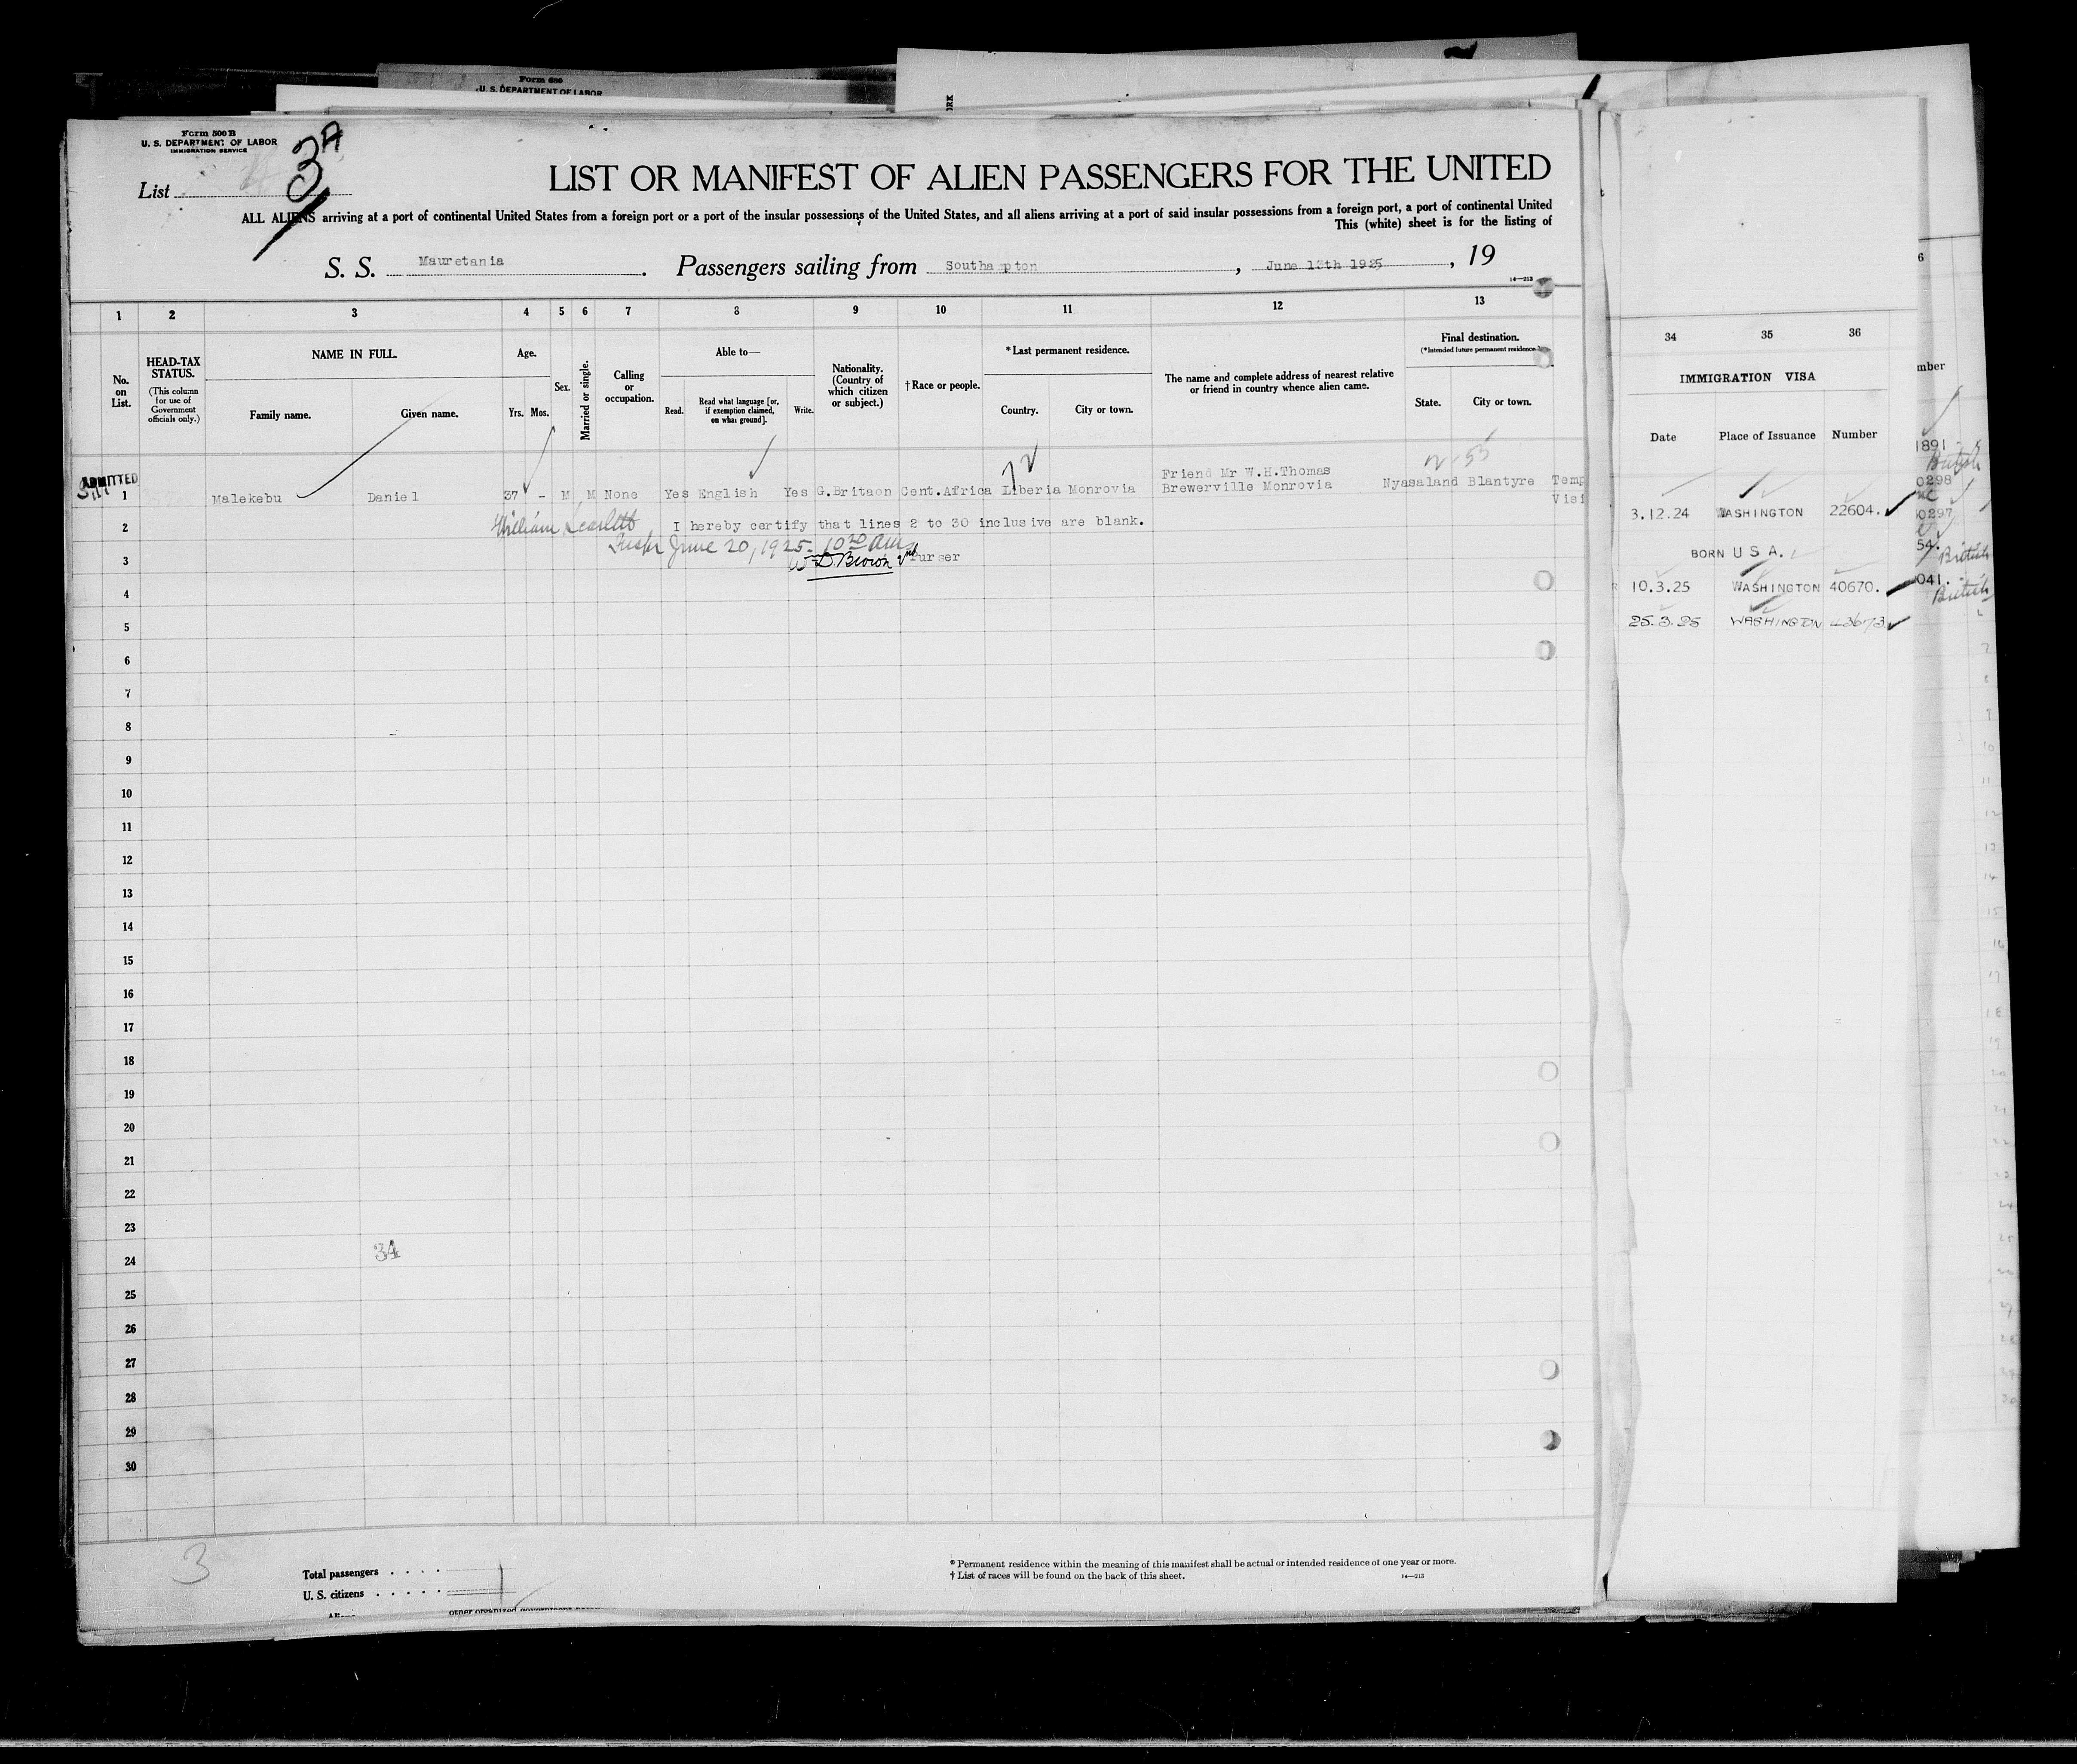 Form 630
U. S. DEPARTMENT OF LABOR
ORK
Form 500 B
U. S. DEPARTMENT OF LABOR
IMMIGRATION SERVICE
List 3A
LIST OR MANIFEST OF ALIEN PASSENGERS FOR THE UNITED
ALL ALIENS arriving at a port of continental United States from a foreign port or a port of the insular possessions of the United States, and all aliens arriving at a port of said insular possessions from a foreign port, a port of continental United
This (white) sheet is for the listing of
S. S. Mauretania. Passengers sailing from Southampton, June 13th 1925, 19
14—213
1 2 3 4 5 6 7 8 9 10 11 12 13
No. on List.
HEAD-TAX STATUS.
(This column for use of Government officials only.)
NAME IN FULL.
Family name. Given name.
Age.
Yrs. Mos.
Sex.
Married or single.
Calling or occupation.
Able to—
Read. Read what language [or, if exemption claimed, on what ground]. Write.
Nationality. (Country of which citizen or subject.)
† Race or people.
* Last permanent residence.
Country. City or town.
The name and complete address of nearest relative or friend in country whence alien came.
Final destination.
(*Intended future permanent residence.)
State. City or town.
ADMITTED
Friend Mr W.H.Thomas
1 Malekebu Daniel 37 - M M None Yes English Yes G.Britaon Cent.Africa Liberia Monrovia Brewerville Monrovia Nyasaland Blantyre Temp
Visi
2 William Scarlett I hereby certify that lines 2 to 30 inclusive are blank.
Inspr June 20, 1925. 10 20 am
3 W D Brown 2nd Purser
4
5
6
7
8
9
10
11
12
13
14
15
16
17
18
19
20
21
22
23
34
24
25
26
27
28
29
30
3
Total passengers . . . .
U. S. citizens . . . . .
Aliens
* Permanent residence within the meaning of this manifest shall be actual or intended residence of one year or more.
† List of races will be found on the back of this sheet.
14—213
34 35 36
IMMIGRATION VISA
Date Place of Issuance Number
3.12.24 WASHINGTON 22604.
BORN U S A.
10.3.25 WASHINGTON 40670.
25.3.25 WASHINGTON 43673
6
mber
1891
British
0298
0297
54.
British
041.
British